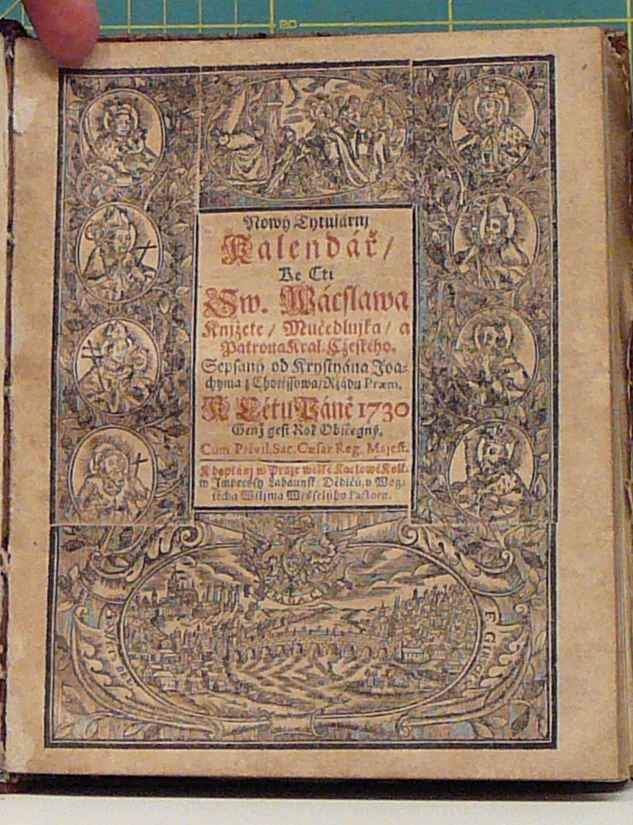 Nowý Tytulárnj
Kalendář /
Ke Cti
Sw. Wácslawa
Knjžete / Mučedlnjka / a
Patrona Král. Cžeského.
Sepsaný od Krystyána Joa-
chyma z Chotissowa / Ržádu Præm.
K Létu Páně 1730
Genž gest Rok Običegný.
Cum Privil. Sac. Cæsar. Reg. Majest.
K dostánj w Praze w
w Impressy Labaunsk. Dědiců, v Wog-
těcha Wilijma Wesselýho Factora.